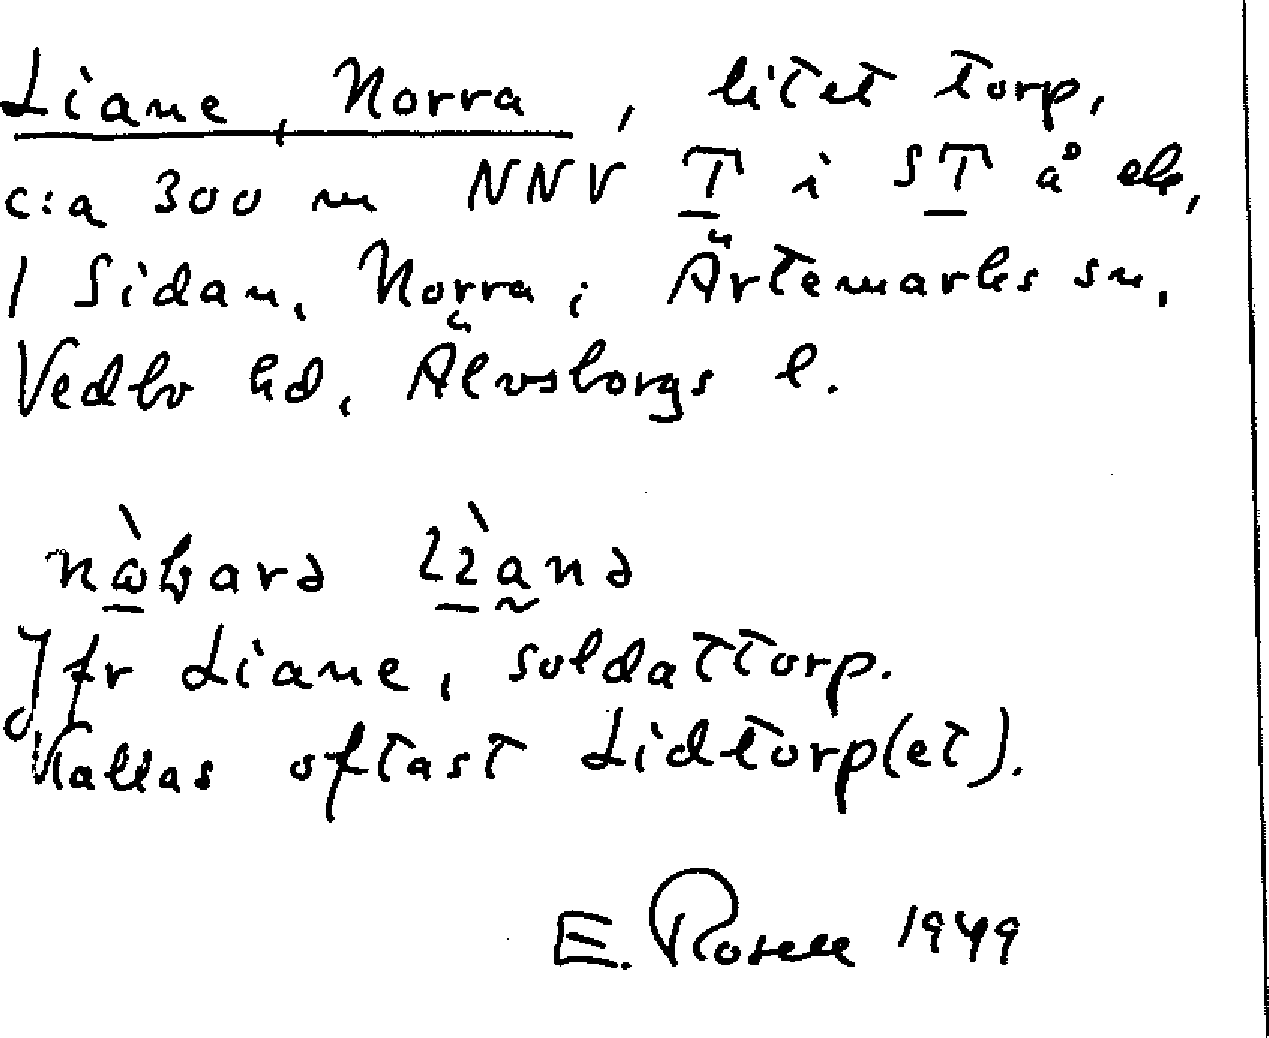 Liane, Norra, litet torp,
c:a 300 m NNV T i ST å ek,
/ Sidan, Norra; Ärtemarks sn,
Vedbo hd, Älvsborgs l.
Jfr Liane, soldattorp.
Kallas oftast Lidtorp(et).
E. Rosell 1949